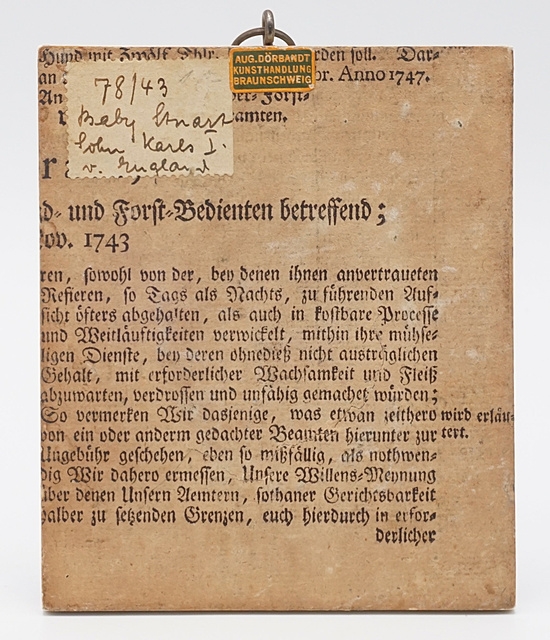 Hund mit Zwölf Thlr. rden soll. Dar-
an br. Anno 1747.
An ber-Forst-
amten.
AUG. DÖRBANDT
KUNSTHANDLUNG
BRAUNSCHWEIG
78/43
Baby Stuart
Sohn Karls I.
v. England
d- und Forst-Bedienten betreffend;
ov. 1743
ren, sowohl von der, bey denen ihnen anvertraueten
Refieren, so Tags als Nachts, zu führenden Auf-
sicht öfters abgehalten, als auch in kostbare Processe
und Weitläuftigkeiten verwickelt, mithin ihre mühse-
ligen Dienste, bey deren ohnedieß nicht austräglichen
Gehalt, mit erforderlicher Wachsamkeit und Fleiß
abzuwarten, verdrossen und unfähig gemachet würden;
So vermerken Wir dasjenige, was etwan zeithero wird erläu-
von ein oder anderm gedachter Beamten hierunter zur tert.
Ungebühr geschehen, eben so mißfällig, als nothwen-
dig Wir dahero ermessen, Unsere Willens-Meynung
über denen Unsern Aemtern, sothaner Gerichtsbarkeit
halber zu setzenden Grenzen, euch hierdurch in erfor-
derlicher